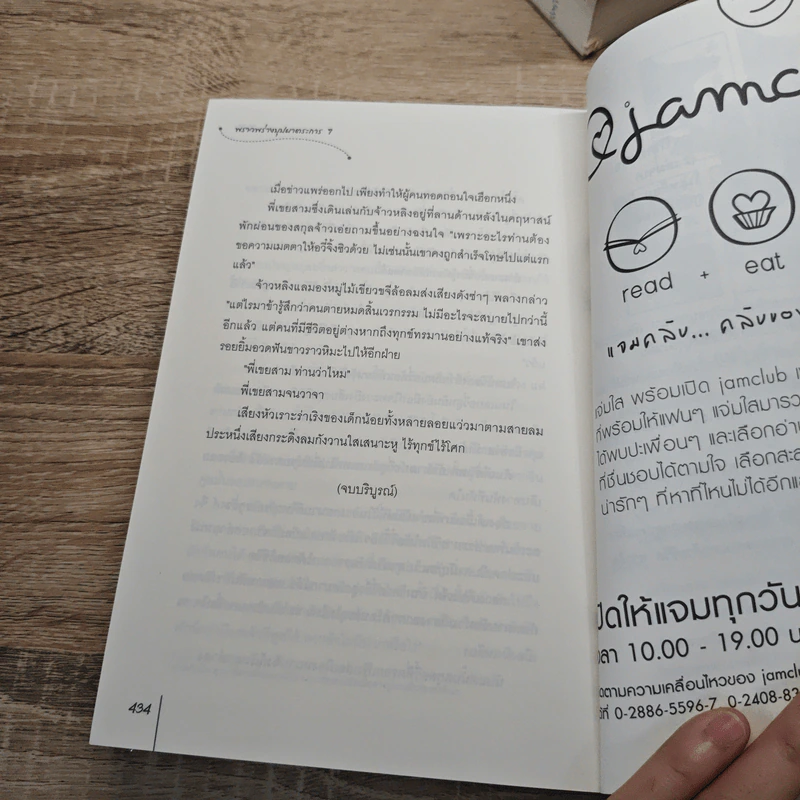 พราวพร่างบุปผาตระการ 9
เมื่อข่าวแพร่ออกไป เพียงทำให้ผู้คนทอดถอนใจเฮือกหนึ่ง
พี่เขยสามซึ่งเดินเล่นกับจ้าวหลิงอยู่ที่ลานด้านหลังในคฤหาสน์
พักผ่อนของสกุลจ้าวเอ่ยถามขึ้นอย่างฉงนใจ "เพราะอะไรท่านต้อง
ขอความเมตตาให้อวี๋จิ้งซิวด้วย ไม่เช่นนั้นเขาคงถูกสำเร็จโทษไปแต่แรก
แล้ว"
จ้าวหลิงแลมองหมู่ไม้เขียวขจีล้อลมส่งเสียงดังซ่าๆ พลางกล่าว
"แต่ไรมาข้ารู้สึกว่าคนตายหมดสิ้นเวรกรรม ไม่มีอะไรจะสบายไปกว่านี้
อีกแล้ว แต่คนที่มีชีวิตอยู่ต่างหากถึงทุกข์ทรมานอย่างแท้จริง" เขาส่ง
รอยยิ้มอวดฟันขาวราวหิมะไปให้อีกฝ่าย
"พี่เขยสาม ท่านว่าไหม"
พี่เขยสามจนวาจา
เสียงหัวเราะร่าเริงของเด็กน้อยทั้งหลายลอยแว่วมาตามสายลม
ประหนึ่งเสียงกระดิ่งลมกังวานใสเสนาะหู ไร้ทุกข์ไร้โศก
(จบบริบูรณ์)
434
@jamc
read + eat
แจมคลับ... คลับของ
แจ่มใส พร้อมเปิด jamclub
ที่พร้อมให้แฟนๆ แจ่มใสมารว
ได้พบปะเพื่อนๆ และเลือกอ่า
ที่ชื่นชอบได้ตามใจ เลือกสะส
น่ารักๆ ที่หาที่ไหนไม่ได้อีกแ
เปิดให้แจมทุกวัน
เวลา 10.00 - 19.00 น
ติดตามความเคลื่อนไหวของ jamclu
ได้ที่ 0-2886-5596-7, 0-2408-82